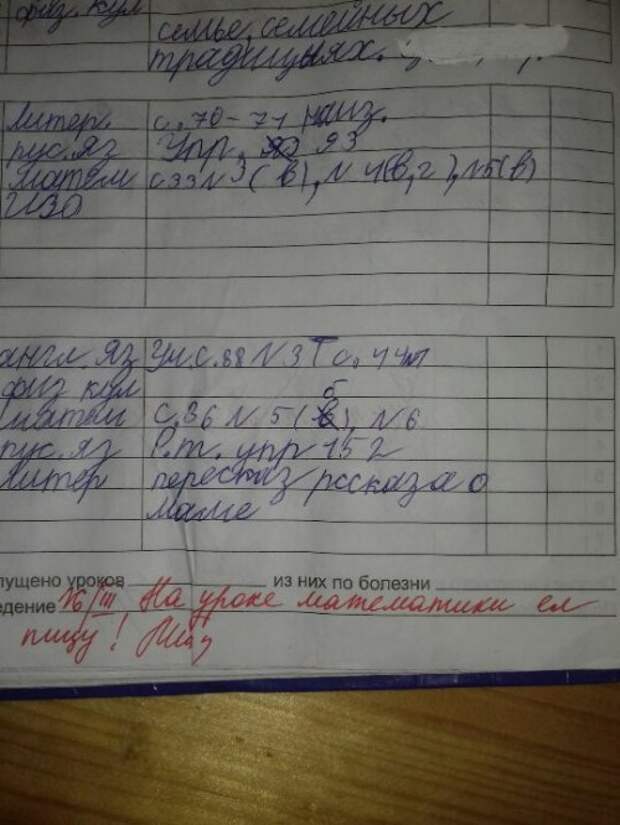 физ. кул
семье, семейных
традициях.
Литер. с. 70-71 наиз.
рус. яз Упр. 93
Матем с 33 N 3 (в), N 4(в,г), N5(в)
ИЗО
англ. яз Уч. с. 88 N 3 Т с. 44
физ кул
б
матем с. 36 N 5 (в), N 6
рус. яз Р.т. упр 152
Литер пересказ россказа о
маме
пущено уроков из них по болезни
едение 16/III На уроке математики ел
пицу!